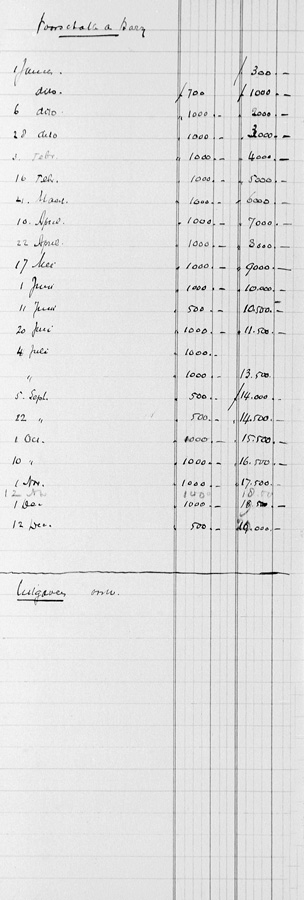 Voorschotten a Barg
1 Januari. ƒ 300.-
dito. ƒ 700 ƒ 1000.-
6 dito 1000.- 2000.-
28 dito 1000.- 3000.-
3 Febr. 1000.- 4000.-
16 Feb. 1000.- 5000.-
21 Maart. 1000.- 6000.-
10 April. 1000.- 7000.-
22 April. 1000.- 8000.-
17 Mei 1000.- 9000.-
1 Juni 1000.- 10.000.-
11 Juni 500.- 10.500.-
20 Juni 1000.- 11.500.-
4 Juli 1000.-
" 1000.- 13.500.
5 Sept. 500.- 14.000.-
22 " 500.- 14.500.-
1 Oct. 1000.- 15.500.-
10 " 1000.- 16.500.-
1 Nov. 1000.- 17.500.-
12 Nov
1 Dec 1000.- 18.500.-
12 Dec. 500.- 19.000.-
Uitgaven